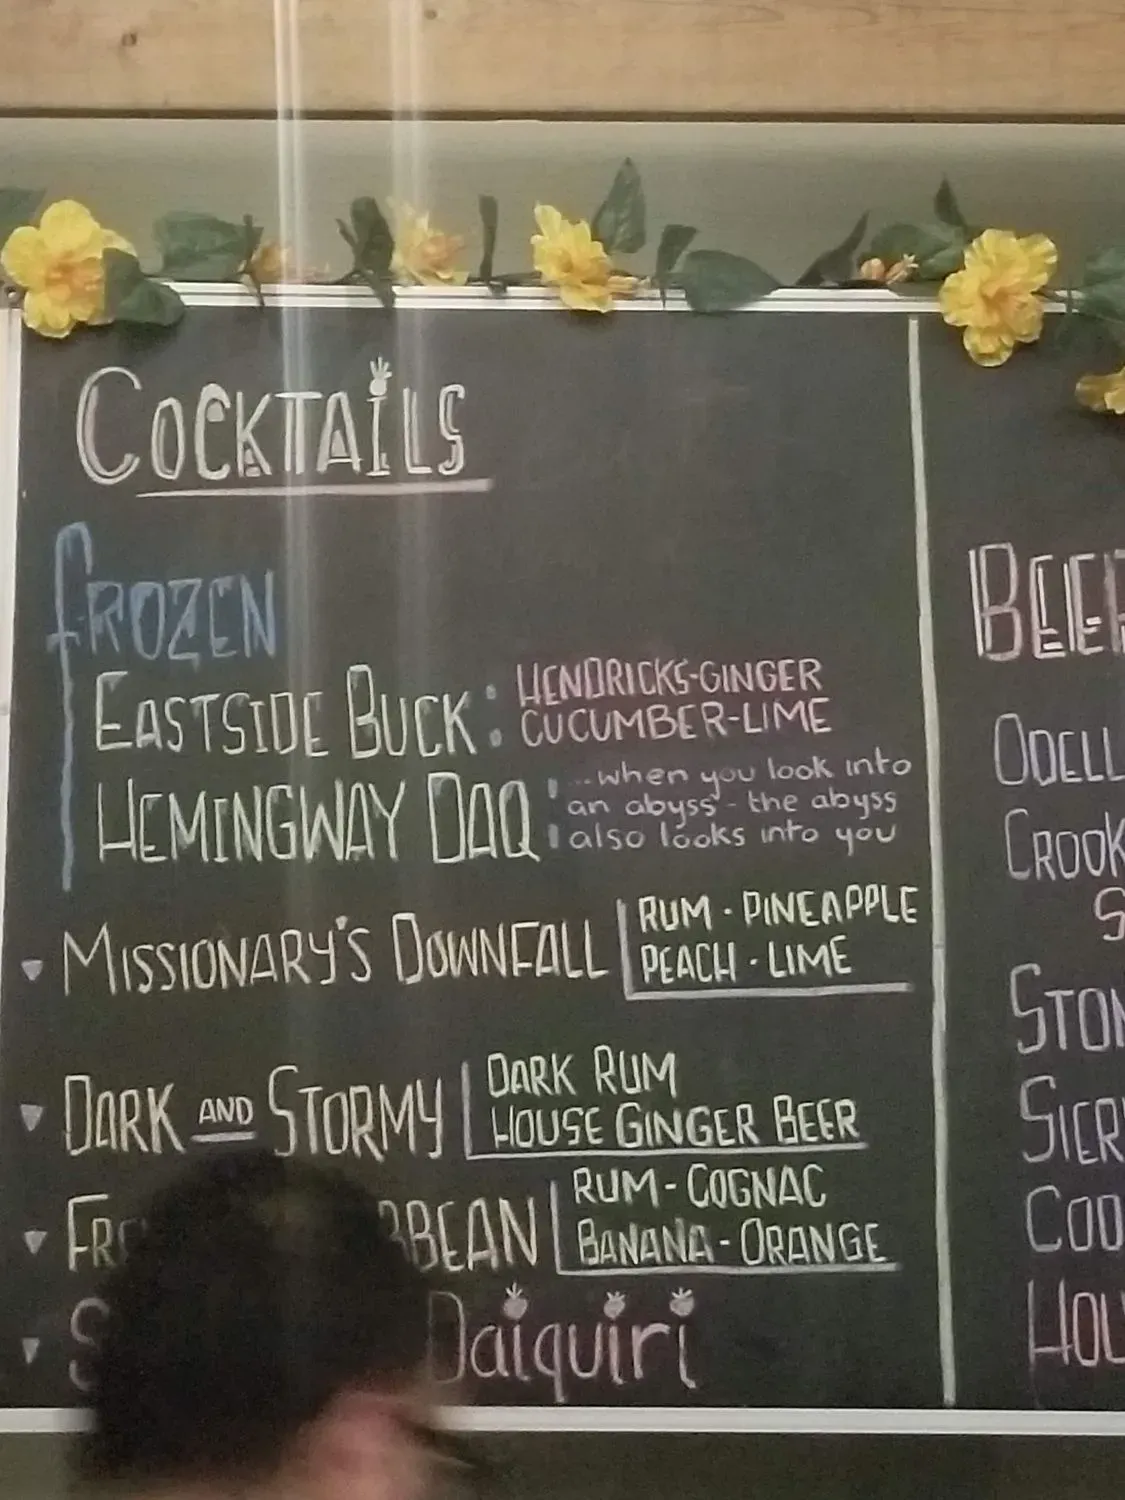 COCKTAILS
FROZEN
EASTSIDE BUCK: HENDRICKS-GINGER
CUCUMBER-LIME
HEMINGWAY DAQ ...when you look into
an abyss - the abyss
also looks into you
MISSIONARY'S DOWNFALL RUM · PINEAPPLE
PEACH · LIME
DARK AND STORMY DARK RUM
HOUSE GINGER BEER
RUM - COGNAC
BANANA - ORANGE
Daiquiri
ODELL